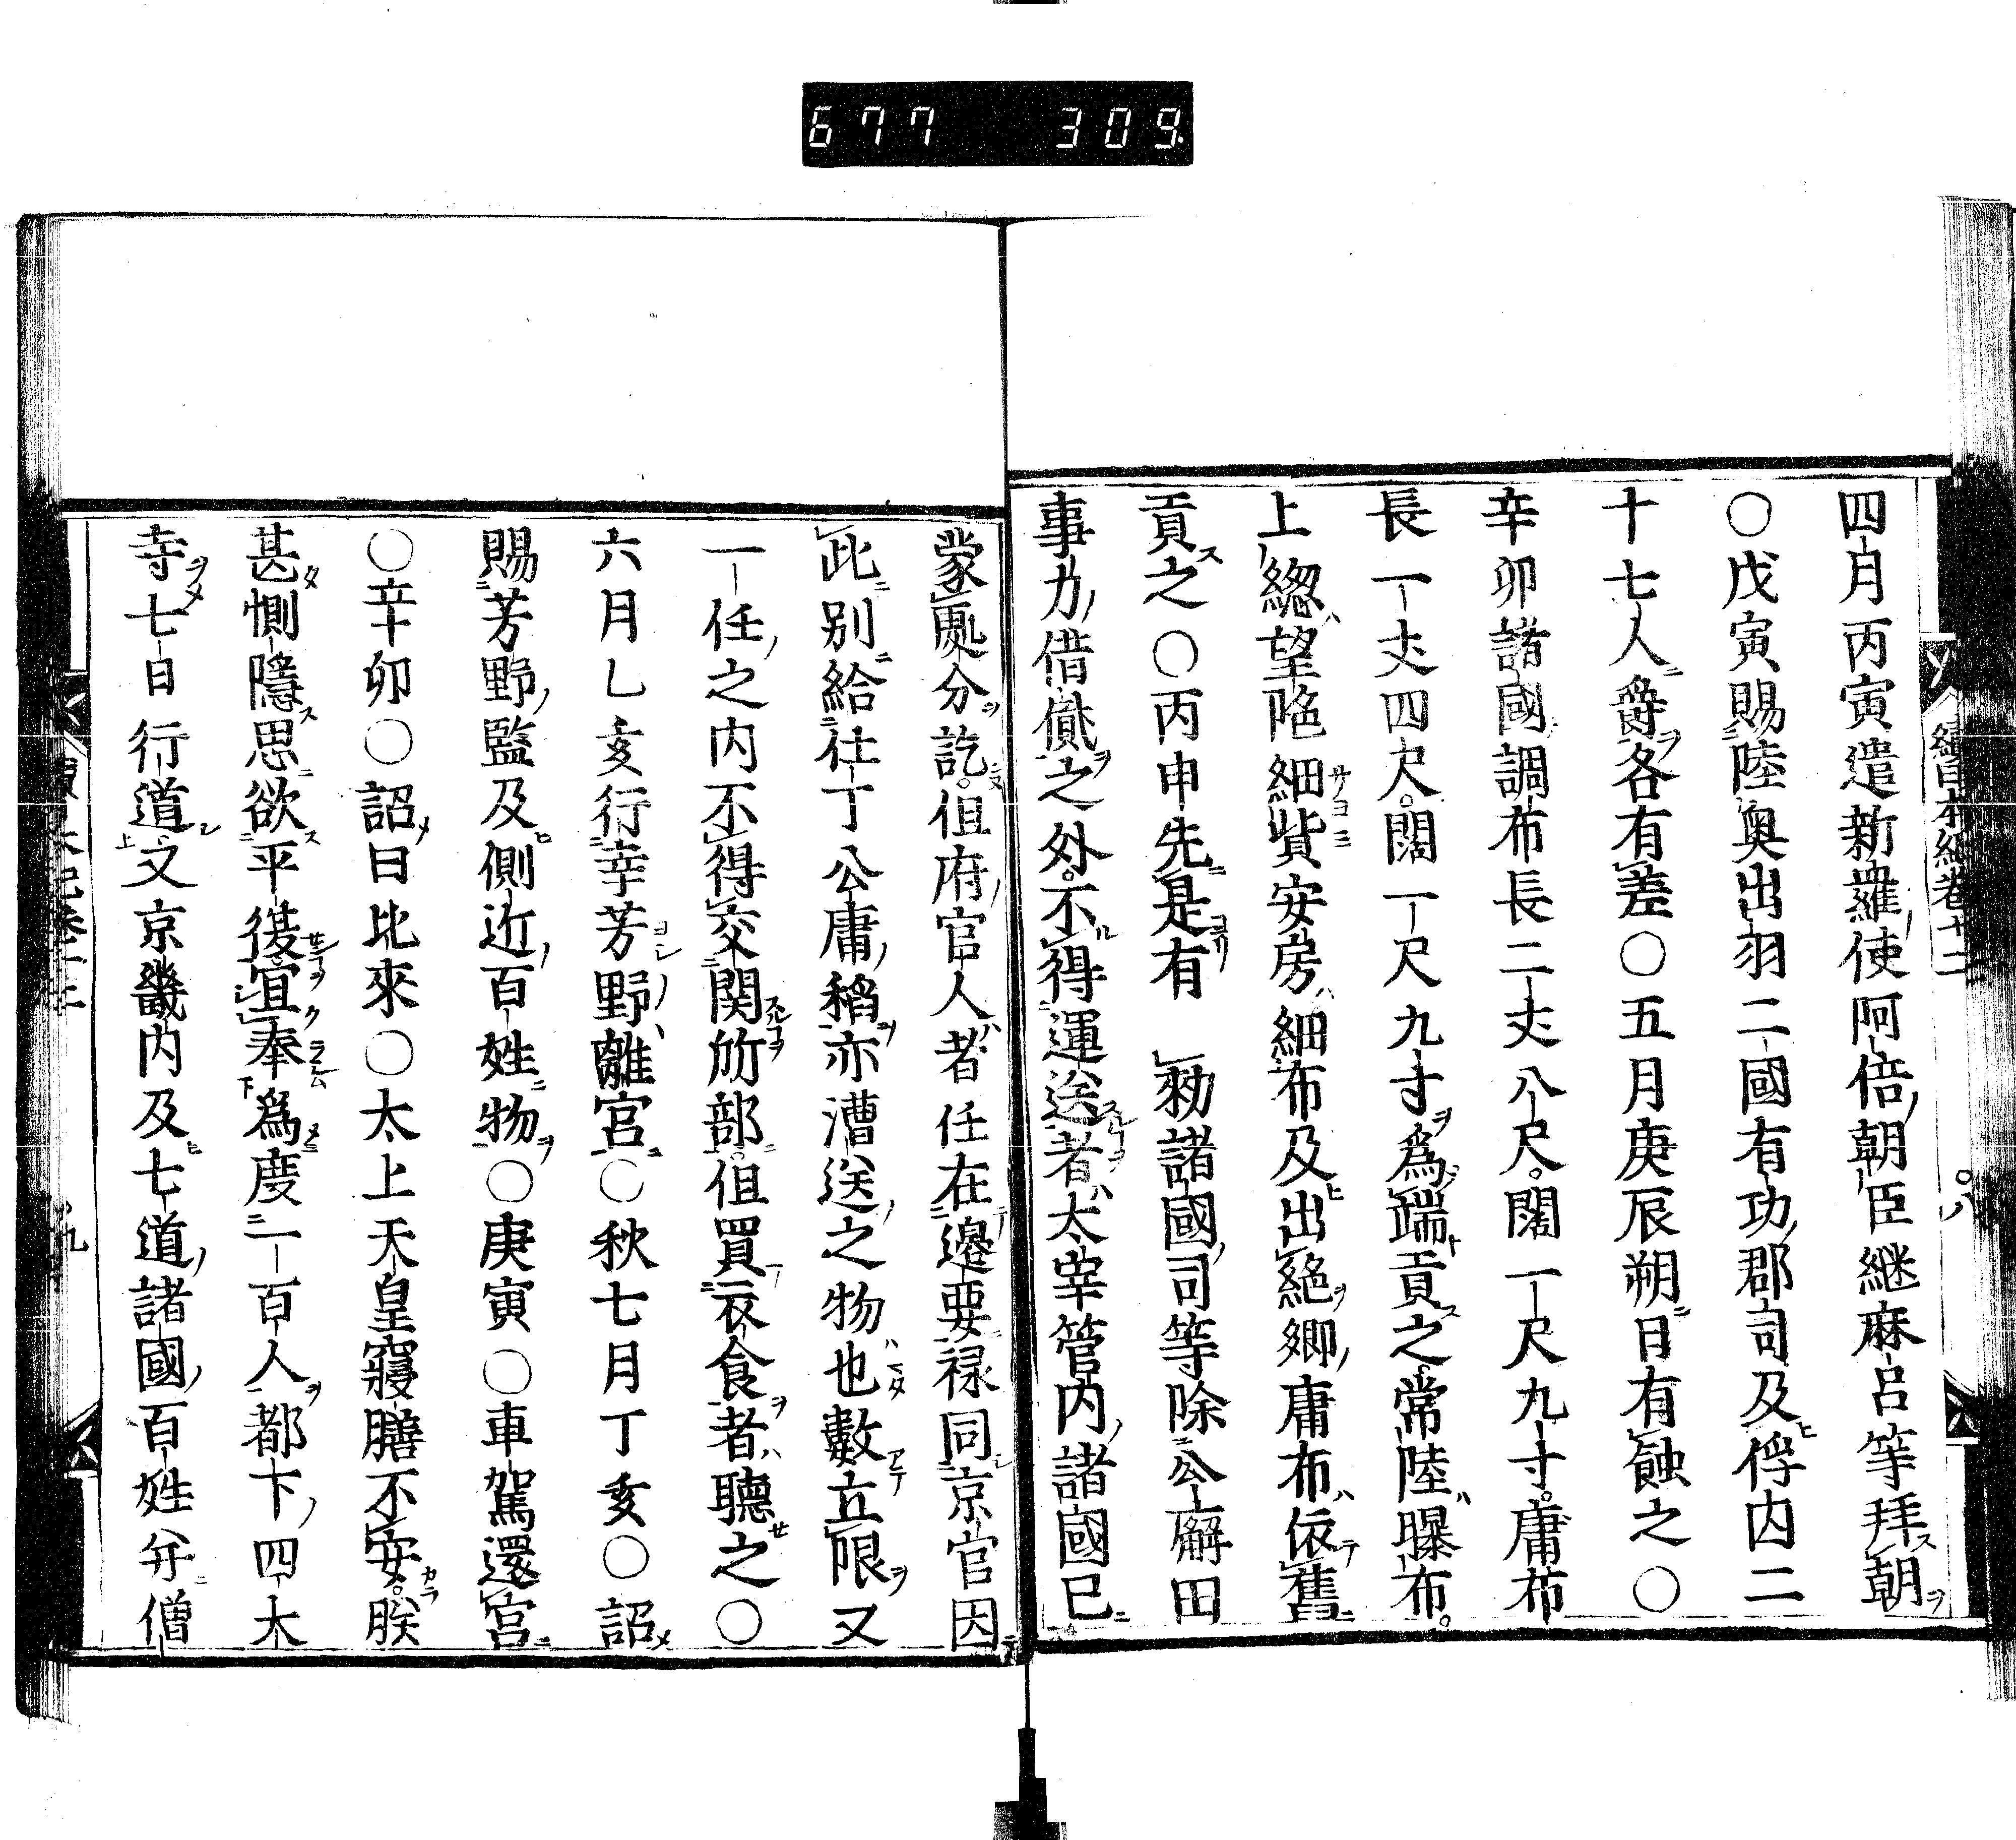 677 309
續日本紀卷十二
八
四月丙寅遣新羅使阿倍朝臣継麻呂等拜朝
○戊寅賜陸奥出羽二國有功郡司及俘内二
十七人爵各有差○五月庚辰朔日有蝕之○
辛卯諸國調布長二丈八尺。闊一尺九寸。庸布
長一丈四尺。闊一尺九寸爲端貢之。常陸曝布。
上緫望陁細貲安房細布及出絁郷庸布依舊
貢之○丙申先是有 勑諸國司等除公廨田
事力借貸之外。不得運送者太宰管内諸國已
蒙處分訖。但府官人者任在邊要禄同京官因
此別給仕丁公庸稻亦漕送之物也數立限又
一任之内不得交関所部。但買衣食者聽之○
六月乙亥行幸芳野離宮○秋七月丁亥○詔
賜芳野監及側近百姓物○庚寅○車駕還宮
○辛卯○詔曰比來○太上天皇寢膳不安。朕
甚惻隱思欲平復宜奉爲度一百人都下四大
寺七日行道文京畿内及七道諸國百姓并僧
九